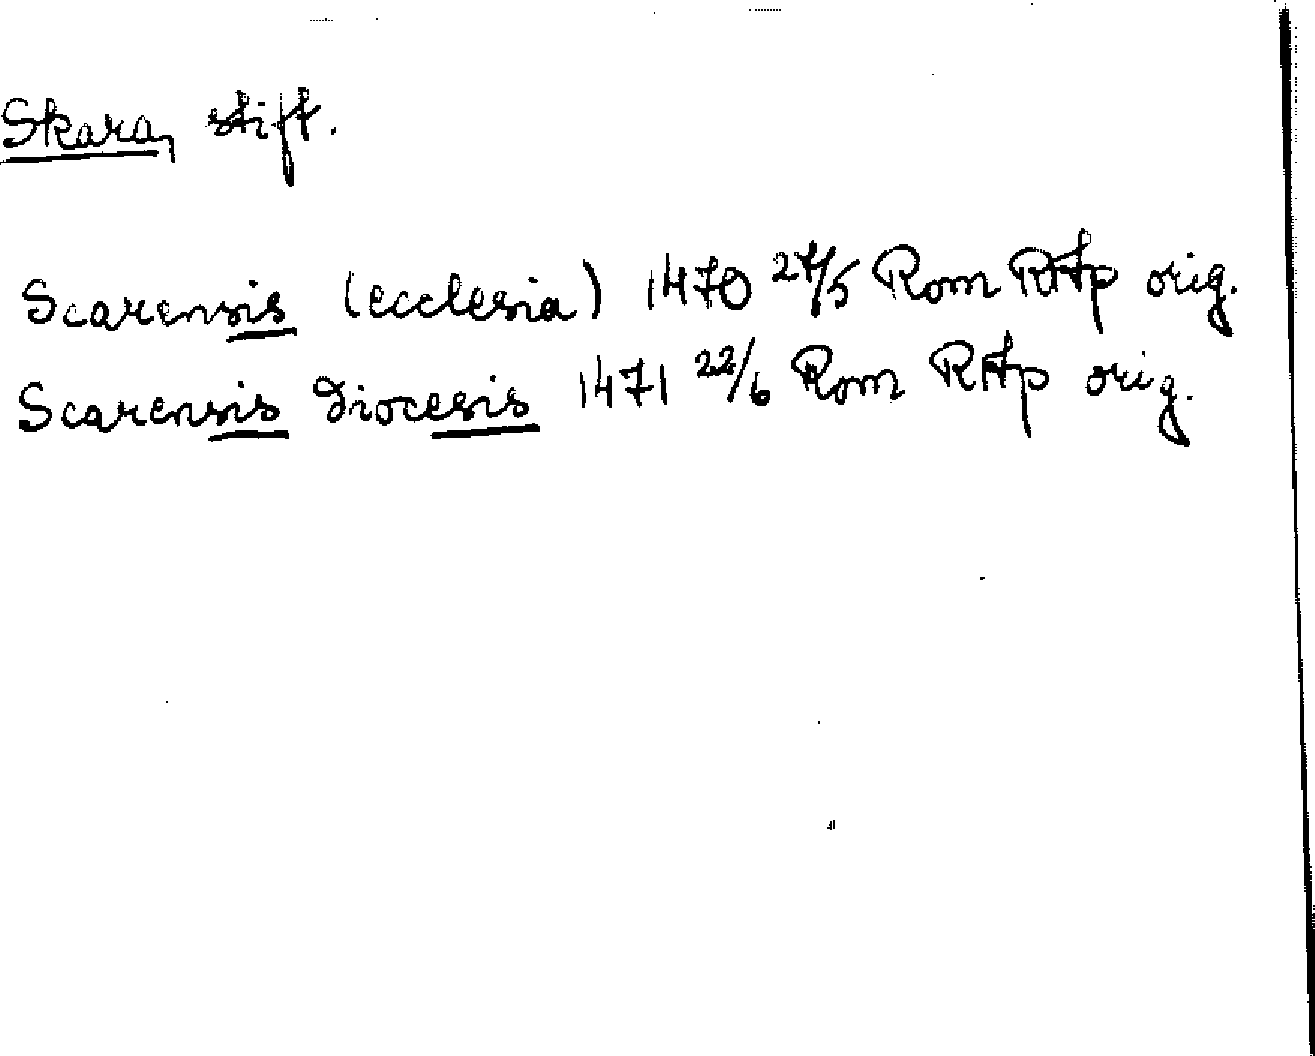 Skara, stift.
Scarensis (ecclesia) 1470 27/5 Rom RAp orig.
Scarensis diocesis 1471 22/6 Rom RAp orig.